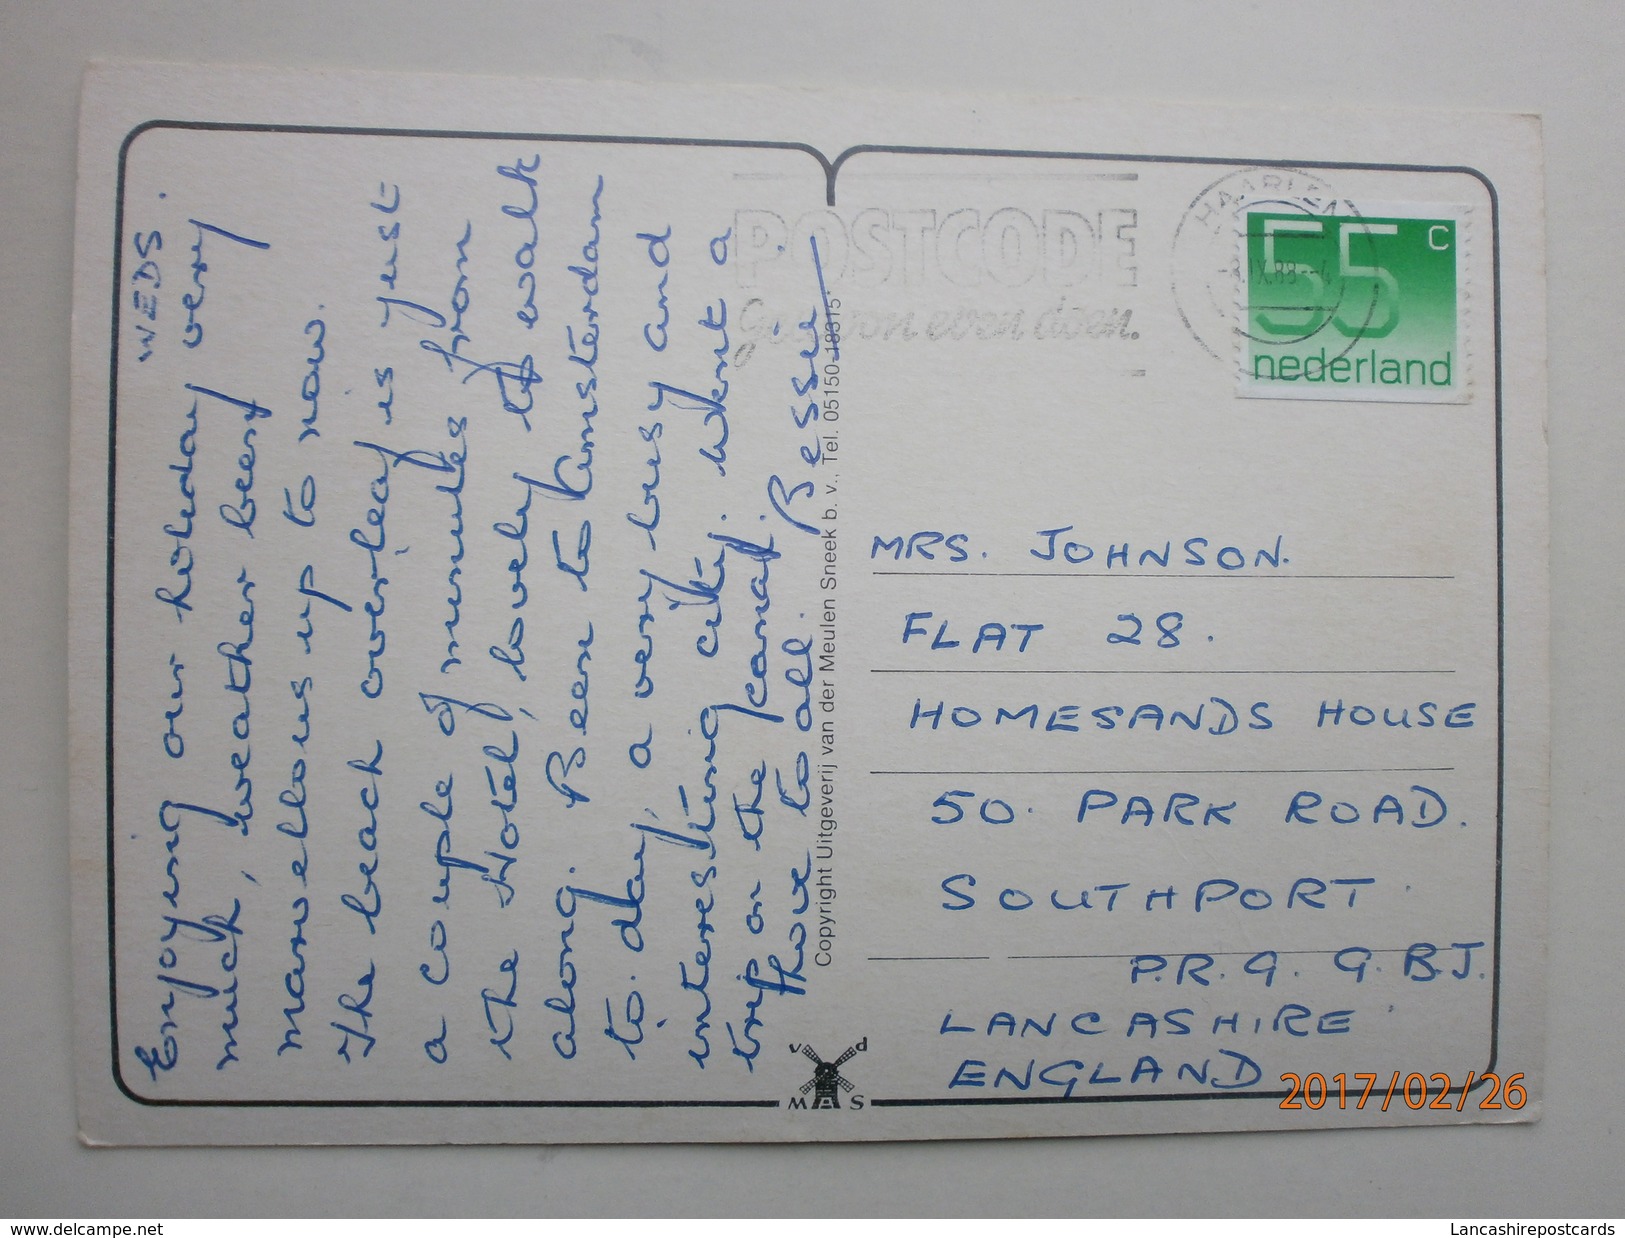 WEDS.
Enjoying our holiday very
much, weather been
marvellous up to now.
The beach overleaf is just
a couple of minutes from
the Hotel, lovely to walk
along. Been to Amsterdam
to.day, a very busy and
interesting city. went a
trip on the canal.
love to all. Bessie
Copyright Uitgeverij van der Meulen Sneek b. v., Tel. 05150-18315*
v d
M S
POSTCODE
even doen.
HAARLEM
IX.88
55 c
nederland
MRS. JOHNSON.
FLAT 28.
HOMESANDS HOUSE
50. PARK ROAD.
SOUTHPORT.
P.R.9. 9.B.J.
LANCASHIRE
ENGLAND
2017/02/26
www.delcampe.net
Lancashirepostcards